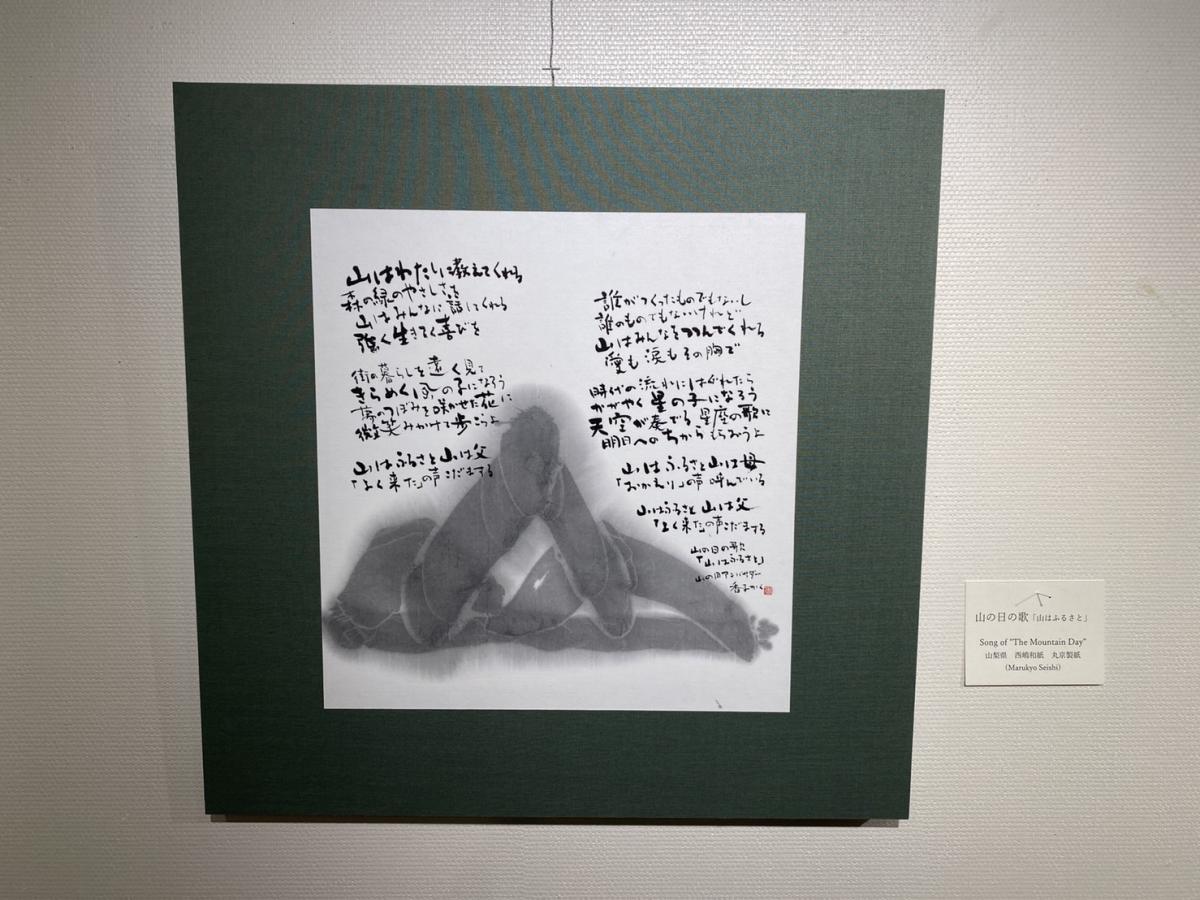 山はわたしに教えてくれる
森の緑のやさしさを
山はみんなに話してくれる
強く生きてく喜びを
街の暮らしを遠く見て
きらめく風の子になろう
夢のつぼみを咲かせた花に
微笑みかけて歩こうよ
山はふるさと山は父
「よく来た」の声こだまする
誰がつくったものでもないし
誰のものでもないけれど
山はみんなをつつんでくれる
愛も涙もその胸で
時代の流れにはぐれたら
かがやく星の子になろう
天空が奏でる星座の歌に
明日へのちからもらおうよ
山はふるさと山は母
「おかえり」の声呼んでいる
山はふるさと山は父
「よく来た」の声こだまする
山の日の歌
「山はふるさと」
山の日アンバサダー
山の日の歌「山はふるさと」
Song of "The Mountain Day"
山梨県 西嶋和紙 丸京製紙
(Marukyo Seishi)